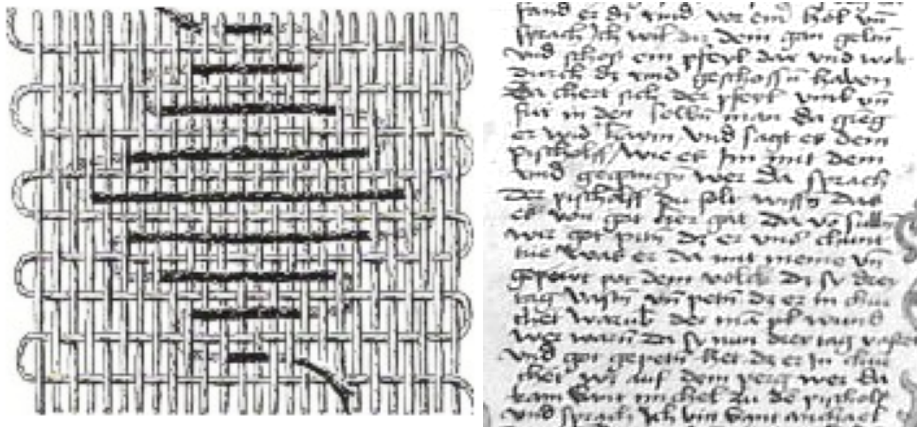 fand er dz vnd wer ein hol vñ
sprach Ich wil dir dem gan geleñ
vnd schoss ein pfeyl dar vnd wolt
durch dz vnd geschossñ haben
Da chert sich der pfeyl vmb vñ
fur in den selbñ man da gieg
er vnd haym vnd sagt es dem
pischolff / wie es Im mit dem
vnd gegangñ wer Da sprach
Der pischolff Du solt wissñ das
es von got hat Da vñ sullñ
wir got pitñ dz er vns chunt
tue was er da mit meine vñ
gepewt vor dem volck dz sy drey
tag vastñ vñ petñ dz er in chun
chet warūb der mā
wer warñ Da sy nun drey tag vastet
vnd got gepetñ het dz er In chun
chet wz auf dem perg wer Da
kam Sant michel zu de pischolf
vnd sprach Ich bin Sant michael